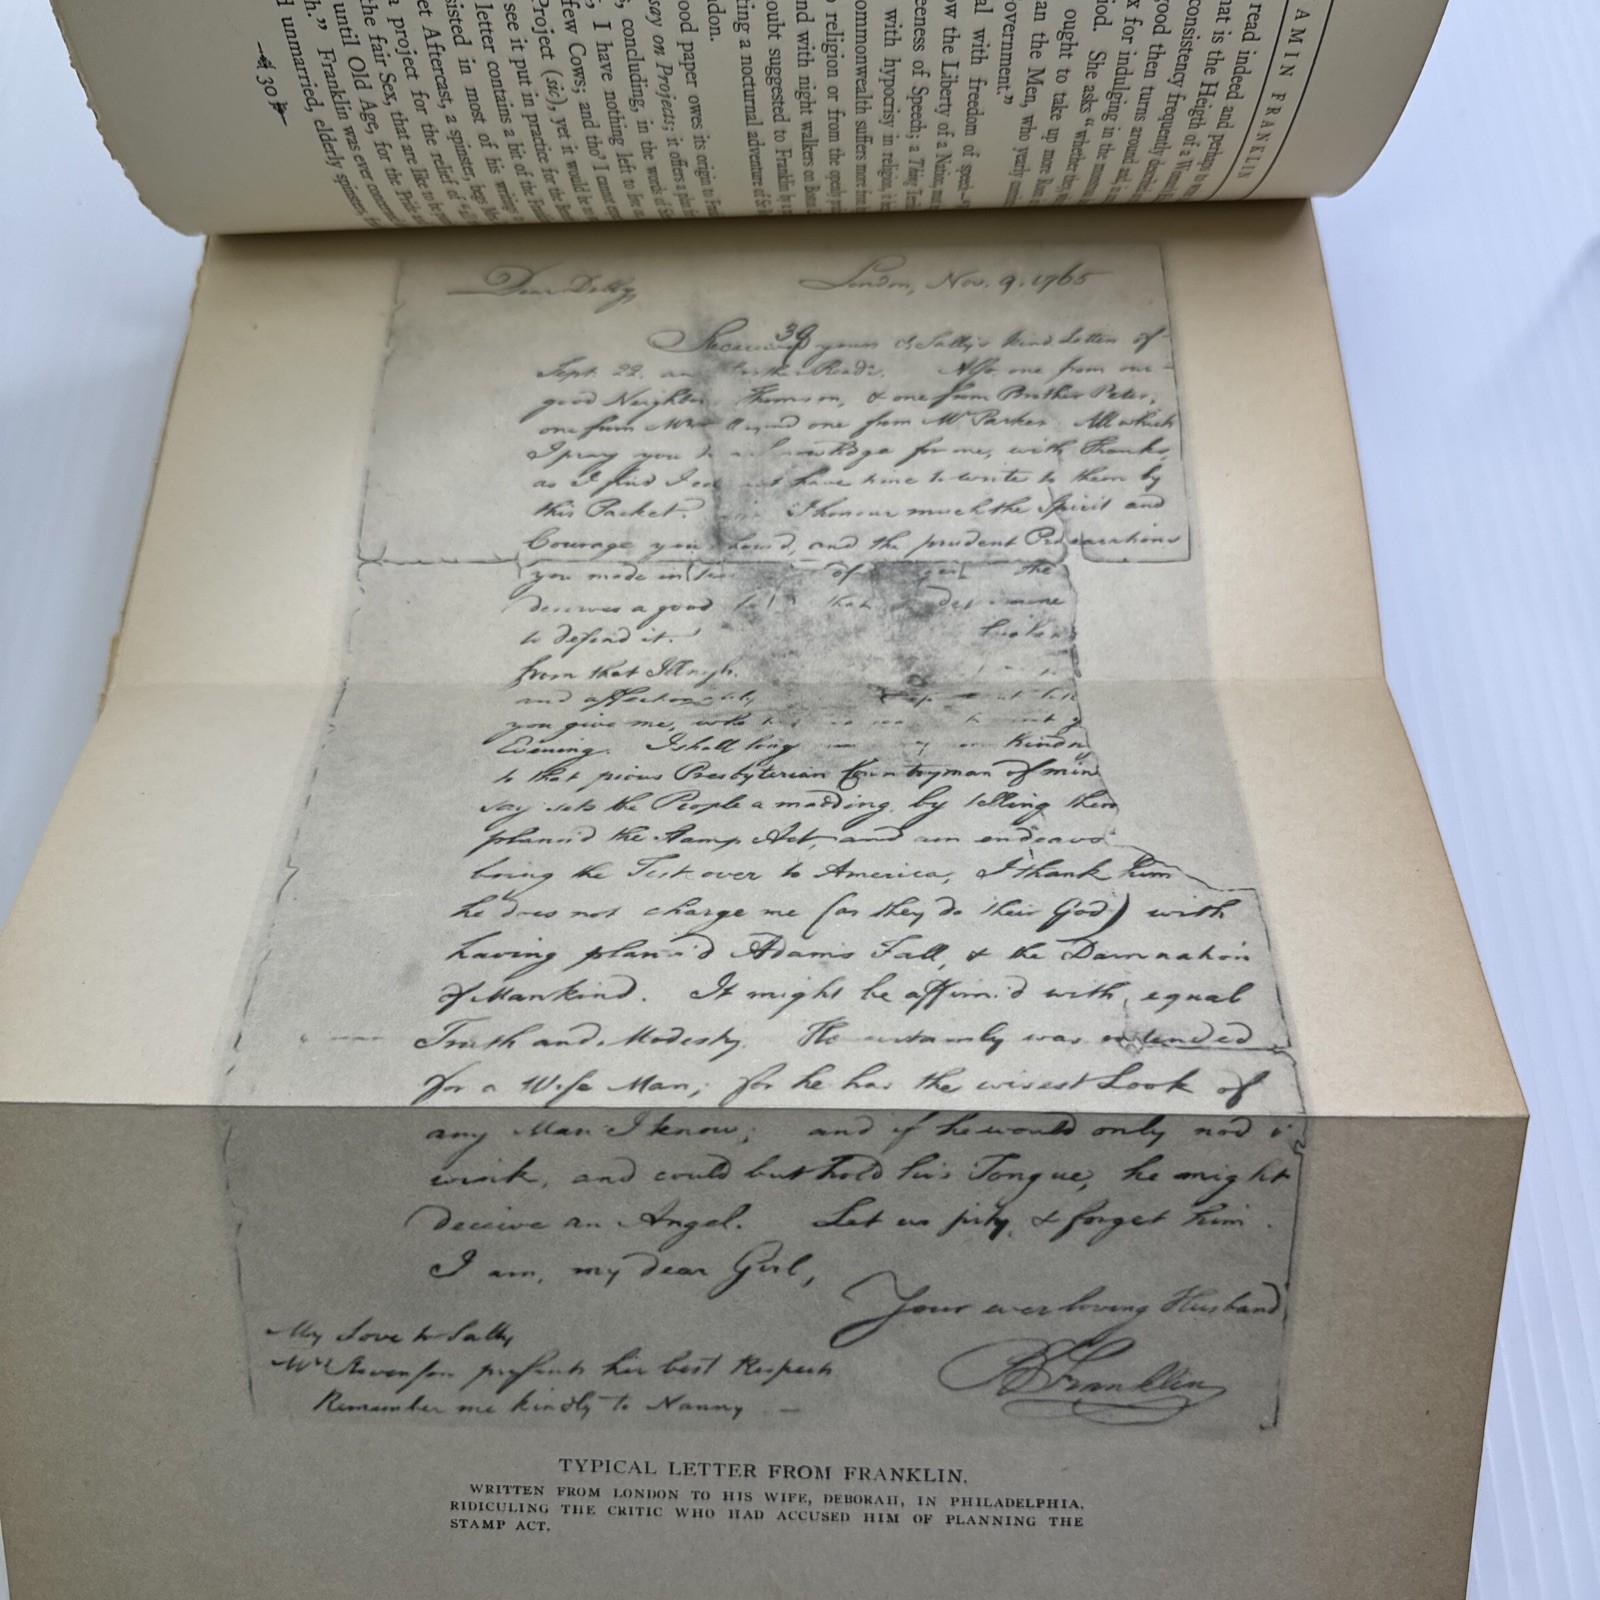 AMIN FRANKLIN
read indeed and perhaps
hat is the Heigth of a
consistency frequently
good then turns around
x for indulging in the
iod. She asks "whether they
ought to take up more
an the Men, who yearly
overnment."
al with freedom of
ow the Liberty of a Nation
eeness of Speech; a Thing
with hypocrisy in religion,
ommonwealth suffers more from
o religion or from the openly
nd with night walkers on
oubt suggested to Franklin by
ting a nocturnal adventure of
ndon.
ood paper owes its origin to
say on Projects; it offers a plan
, concluding, in the words of
I have nothing left to
few Cows; and tho' I cannot
Project (sic), yet it would be
see it put in practice for the
letter contains a bit of the
sisted in most of his writings
et Aftercast, a spinster, begs
a project for the relief of
the fair Sex, that are like to be
until Old Age, for the Pride
h." Franklin was ever
d unmarried, elderly spinsters,
30
Dear Debby, London, Nov. 9. 1765
Received yours & Sally's kind Letters of
Sept. 22. Also one from our
good Neighbor Thomson, & one from Brother Peter,
one from and one from Mr Parker. All which
I pray you to acknowledge for me, with Thanks,
as I find I have time to write to them by
this Packet. I honour much the Spirit and
Courage you show'd, and the prudent Preparations
you made in of the
deserves a good that
to defend it.
from that
and affectionately
you give me, who
Evening. I shall long Kindn
to that pious Presbyterian Countryman of mine
say sets the People a madding, by telling them
plann'd the Stamp Act, and am endeavo
bring the Test over to America, I thank him
he does not charge me (as they do their God) with
having plann'd Adam's Fall, & the Damnation
of Mankind. It might be affirm'd with equal
Truth and Modesty. He certainly was intended
for a Wise Man; for he has the wisest Look of
any Man I know; and if he would only nod &
wink, and could but hold his Tongue, he might
deceive an Angel. Let us pity & forget him.
I am, my dear Girl,
Your ever loving Husband
B Franklin
My Love to Sally
Mrs Stevenson presents her best Respects
Remember me kindly to Nanny
TYPICAL LETTER FROM FRANKLIN.
WRITTEN FROM LONDON TO HIS WIFE, DEBORAH, IN PHILADELPHIA,
RIDICULING THE CRITIC WHO HAD ACCUSED HIM OF PLANNING THE
STAMP ACT.